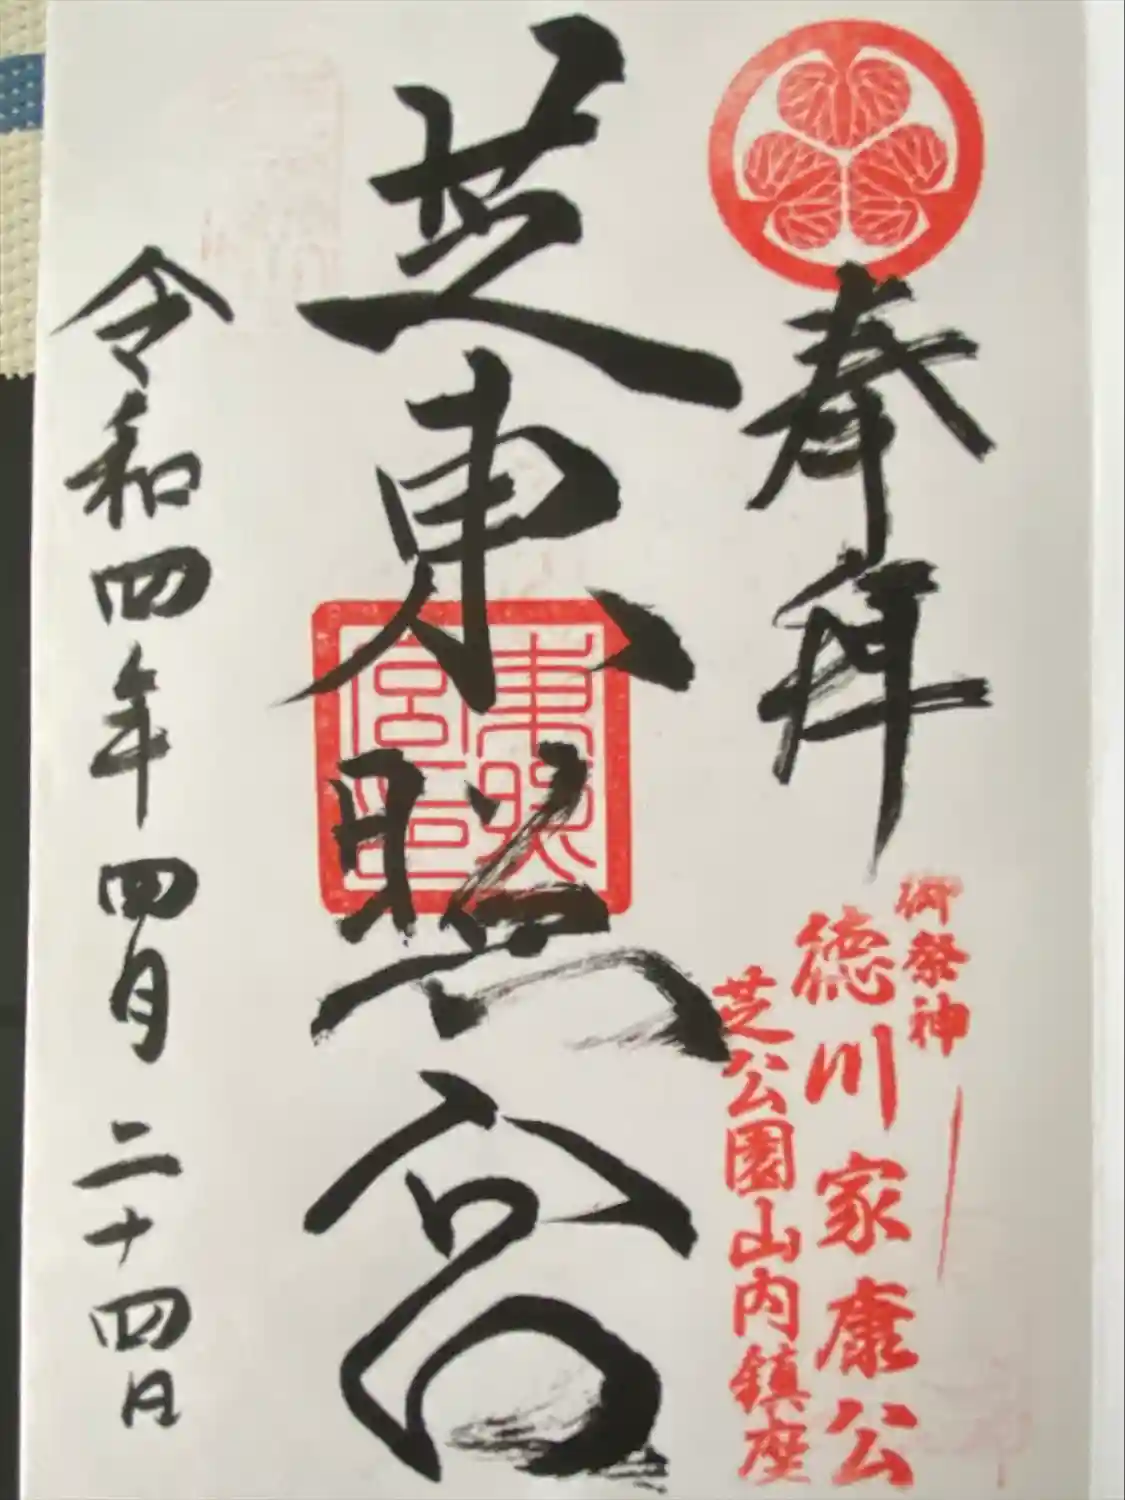 奉拝
御祭神
徳川家康公
芝公園山内鎮座
芝東照宮
東照
宮印
令和四年四月二十四日